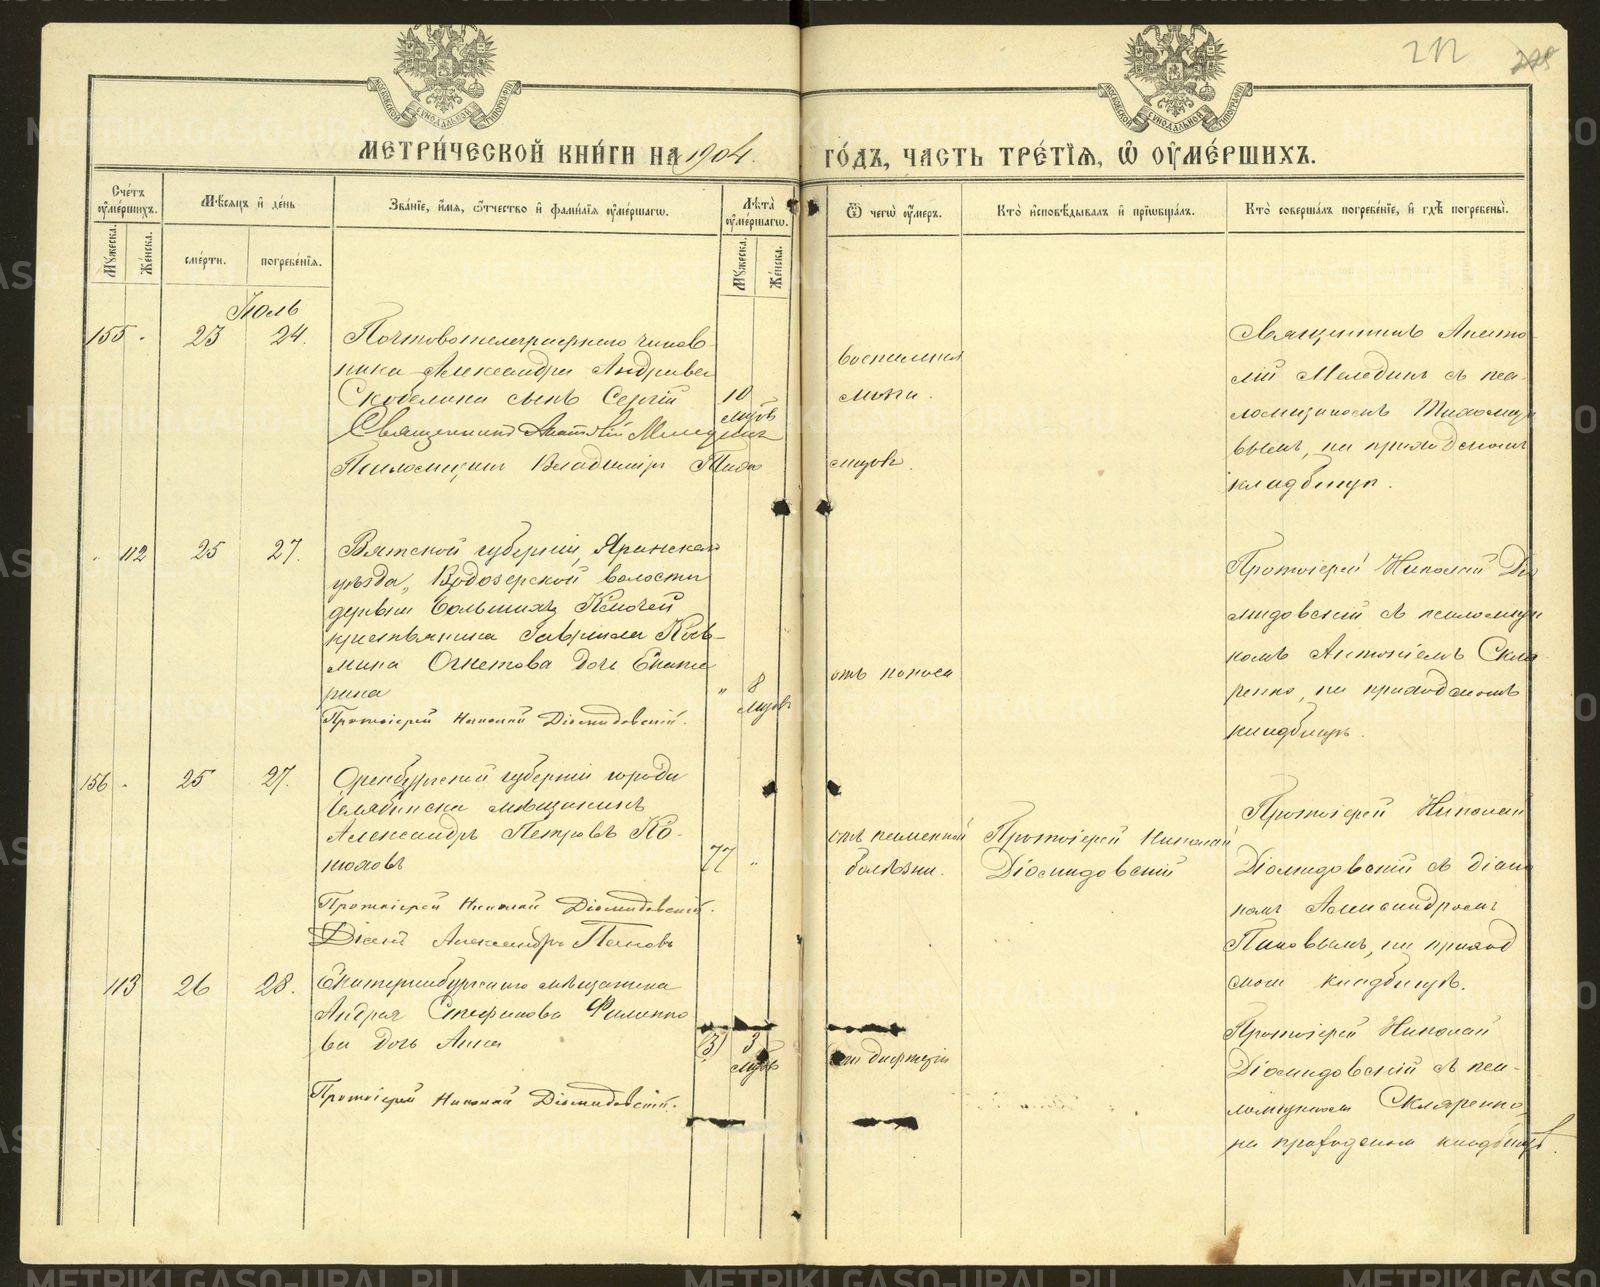 212
МЕТРИЧЕСКОЙ КНИГИ НА 1904.
ГОДЪ, ЧАСТЬ ТРЕТІЯ, Ѿ ОУМЕРШИХЪ.
Счетъ оумершихъ.
Мѣсяцъ и день
Званіе, имя, отчество и фамилія оумершагѡ.
Лѣта оумершагѡ.
Ѿ чегѡ оумеръ.
Кто исповѣдывалъ и пріобщалъ.
Кто совершалъ погребеніе, и гдѣ погребены.
Мужеска.
Женска.
смерти.
погребенія.
Мужеска.
Женска.
Іюль
155 23 24.
Почтовотелеграфнаго чинов-
ника Александра Андреева
Скобелина сынъ Сергій
10 мцов
Священникъ Анатолій Меледин
Псаломщикъ Владимір Тихо
воспаленія
мцовъ.
Священникъ Анато-
лій Меледин съ пса-
ломщикомъ Тихомир
вымъ, на приходском
кладбищѣ.
112 25 27.
Вятской губерніи, Яранскаго
уѣзда, Водозерской волости
деревни Большихъ Ключей
крестьянина Гавриила Козь-
мина Огнетова дочь Екате
рина
8 мцов
Протоіерей Николай Діомидовскій.
отъ поноса
Протоіерей Николай Діо
мидовскій съ псаломщи
комъ Антоніемъ Скля
ренко, на приходскомъ
кладбищѣ.
156 25 27.
Оренбургской губерніи города
Челябинска мѣщанинъ
Александръ Петровъ Ко-
нюховъ
77 "
Протоіерей Николай Діомидовскій.
Діаконъ Александръ Пановъ
отъ каменной
болѣзни.
Протоіерей Николай
Діомидовскій
Протоіерей Николай
Діомидовскій съ діако
номъ Александромъ
Пановымъ, на приход
ском кладбищѣ.
113 26 28.
Екатеринбургскаго мѣщанина
Андрея Стефанова Филиппо
ва дочь Анна
(3) 3 мцов
Протоіерей Николай Діомидовскій.
от дифтеріи
Протоіерей Николай
Діомидовскій съ пса-
ломщиком Скляренко,
на приходском кладбищѣ.